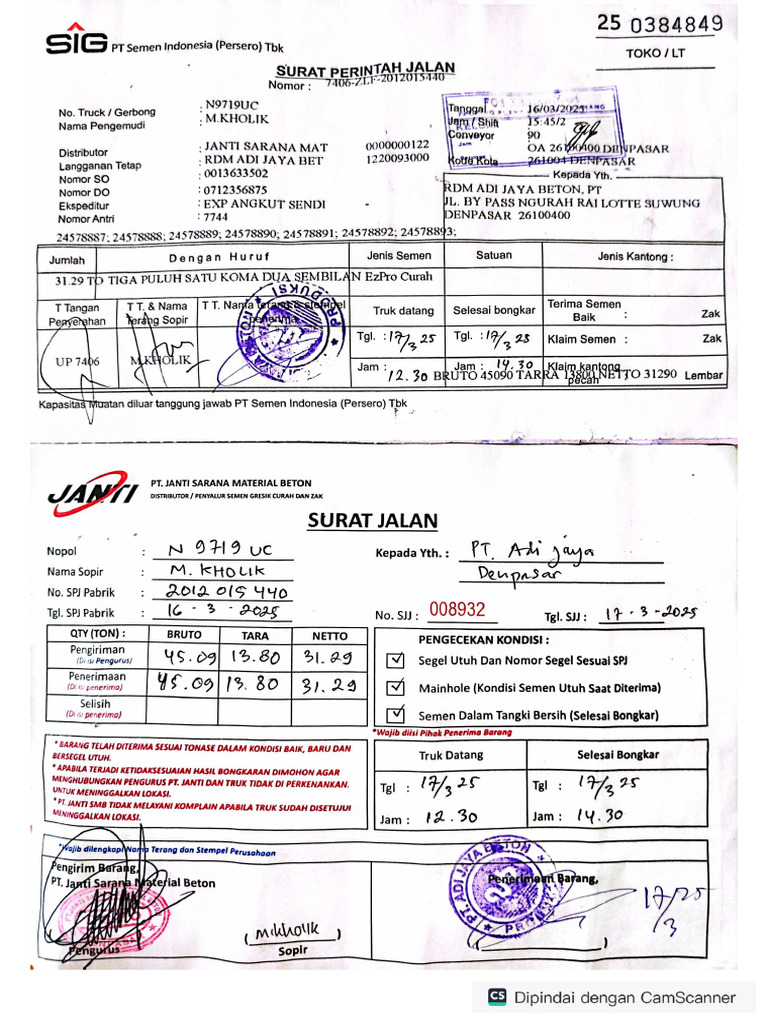 25 0384849
SIG PT Semen Indonesia (Persero) Tbk
TOKO / LT
SURAT PERINTAH JALAN
Nomor : 7406-ZLF-2012015440
No. Truck / Gerbong : N9719UC
Nama Pengemudi : M.KHOLIK
Tanggal 16/03/2025
Jam / Shift 15:45/2
Conveyor 90
OA 26100400 DENPASAR
Kode Kota 261004 DENPASAR
Distributor : JANTI SARANA MAT 0000000122
Langganan Tetap : RDM ADI JAYA BET 1220093000
Nomor SO : 0013633502
Nomor DO : 0712356875
Ekspeditur : EXP ANGKUT SENDI
Nomor Antri : 7744
Kepada Yth.
RDM ADI JAYA BETON, PT
JL. BY PASS NGURAH RAI LOTTE SUWUNG
DENPASAR 26100400
24578887; 24578888; 24578889; 24578890; 24578891; 24578892; 24578893;
Jumlah Dengan Huruf Jenis Semen Satuan Jenis Kantong :
31.29 TO TIGA PULUH SATU KOMA DUA SEMBILAN EzPro Curah
T Tangan Penyerahan
T T. & Nama Terang Sopir
T T. Nama terang & stempel penerima
Truk datang
Selesai bongkar
Terima Semen Baik : Zak
Tgl. : 17/3 25
Tgl. : 17/3 25
Klaim Semen : Zak
UP 7406
M.KHOLIK
Jam : 12.30
Jam : 14.30
Klaim kantong pecah : Lembar
BRUTO 45090 TARRA 13800 NETTO 31290
Kapasitas Muatan diluar tanggung jawab PT Semen Indonesia (Persero) Tbk
JANTI PT. JANTI SARANA MATERIAL BETON
DISTRIBUTOR / PENYALUR SEMEN GRESIK CURAH DAN ZAK
SURAT JALAN
Nopol : N 9719 UC
Kepada Yth. : PT. Adi jaya
Denpasar
Nama Sopir : M. KHOLIK
No. SPJ Pabrik : 2012 015 440
Tgl. SPJ Pabrik : 16 - 3 - 2025
No. SJJ : 008932
Tgl. SJJ : 17 - 3 - 2025
QTY (TON) : BRUTO TARA NETTO
Pengiriman (Di isi Pengurus) 45.09 13.80 31.29
Penerimaan (Di isi penerima) 45.09 13.80 31.29
Selisih (Di isi penerima)
PENGECEKAN KONDISI :
Segel Utuh Dan Nomor Segel Sesuai SPJ
Mainhole (Kondisi Semen Utuh Saat Diterima)
Semen Dalam Tangki Bersih (Selesai Bongkar)
*Wajib diisi Pihak Penerima Barang
* BARANG TELAH DITERIMA SESUAI TONASE DALAM KONDISI BAIK, BARU DAN
BERSEGEL UTUH.
* APABILA TERJADI KETIDAKSESUAIAN HASIL BONGKARAN DIMOHON AGAR
MENGHUBUNGKAN PENGURUS PT. JANTI DAN TRUK TIDAK DI PERKENANKAN.
UNTUK MENINGGALKAN LOKASI.
* PT. JANTI SMB TIDAK MELAYANI KOMPLAIN APABILA TRUK SUDAH DISETUJUI
MENINGGALKAN LOKASI.
Truk Datang Selesai Bongkar
Tgl : 17/3 25 Tgl : 17/3 25
Jam : 12.30 Jam : 14.30
*Wajib dilengkapi Nama Terang dan Stempel Perusahaan
Pengirim Barang,
PT. Janti Sarana Material Beton
Penerimaan Barang,
PT. ADI JAYA BETON
17/3 25
Pengurus
(M.kholik)
Sopir
CS Dipindai dengan CamScanner